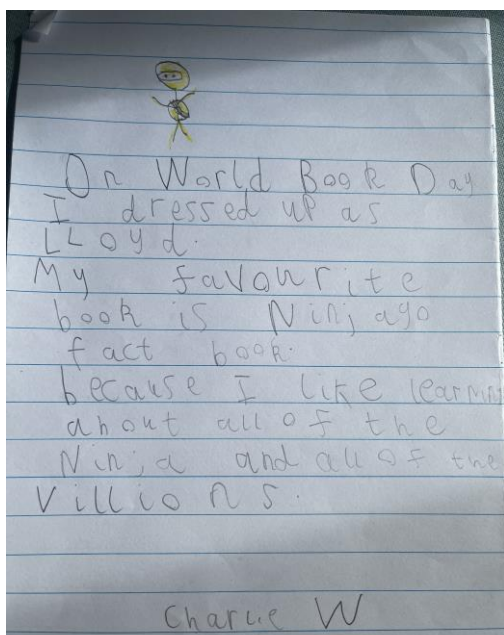 On World Book Day
I dressed up as
LLoyd.
My favourite
book is Ninjago
fact book.
because I like learning
about all of the
Ninja and all of the
Villions.
Charlie W